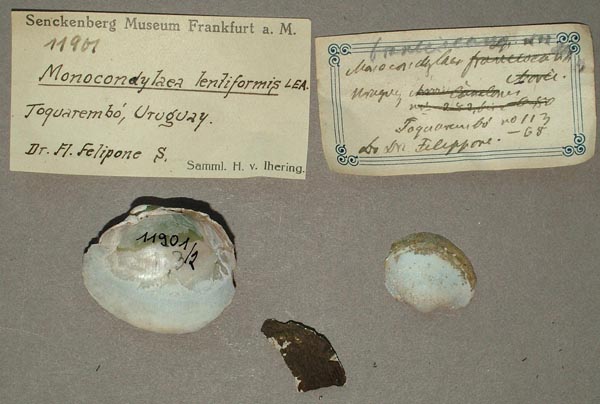 Senckenberg Museum Frankfurt a. M.
11901
Monocondylaea lentiformis LEA.
Toquarembó, Uruguay.
Dr. Fl. Felipone S.
Samml. H. v. Ihering.
Monocondylaea franciscana
Uruguay
Toquarembó no 113
Do Dr. Filippone. —68
11901/2